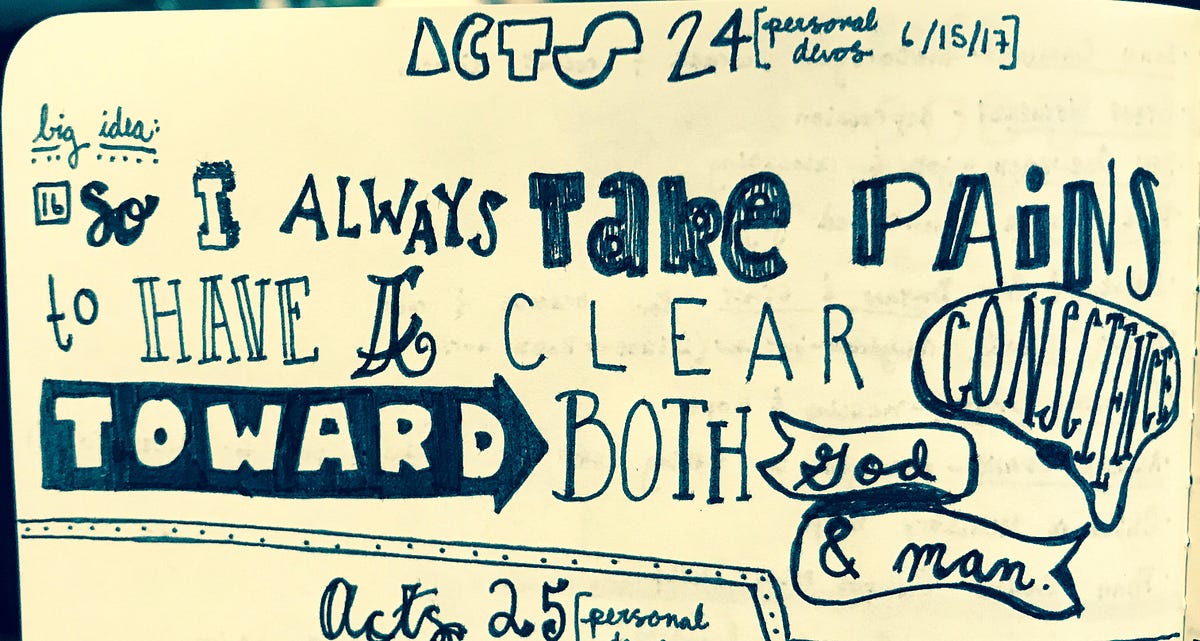 ACTS 24 [personal devos 6/15/17]
big idea:
16 So I ALWAYS Take PAiNS
to HAVE A CLEAR CONSCIENCE
TOWARD BOTH God
& man.
Acts 25 [personal